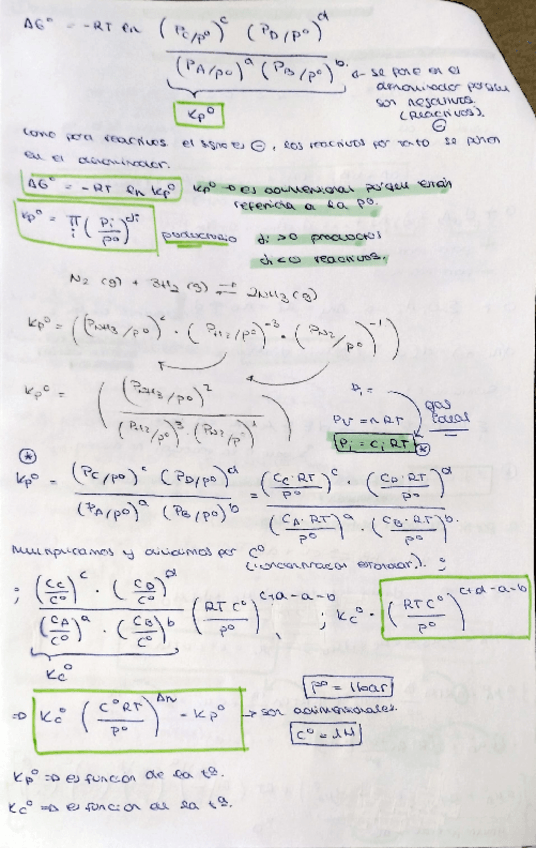 ΔG° = -RT ln (Pc/p°)^c (PD/p°)^d
(PA/p°)^a (PB/p°)^b.
← se pone en el
denominador porque
son negativos.
(reactivos).
⊖
Kp°
como para reactivos el signo es ⊖, los reactivos por tanto se ponen
en el denominador.
ΔG° = -RT ln Kp° Kp° → es adimensional porque están
referida a la p°.
Kp° = π_i (Pi/p°)^αi productorio αi >0 productos
αi <0 reactivos.
N2 (g) + 3H2 (g) ⇌ 2NH3 (g)
Kp° = ((PNH3/p°)^2 · (PH2/p°)^-3 · (PN2/p°)^-1)
Kp° = ((PNH3/p°)^2
(PH2/p°)^3 · (PN2/p°)^1)
PV = nRT gas
ideal
Pi = ci RT *
*
Kp° = (Pc/p°)^c (PD/p°)^d = (Cc·RT/p°)^c · (CD·RT/p°)^d
(PA/p°)^a (PB/p°)^b (CA·RT/p°)^a · (CB·RT/p°)^b.
Multiplicamos y dividimos por C°
(concentración estándar). ;
; (Cc/C°)^c · (CD/C°)^d (RTC°/p°)^c+d-a-b ; Kc° · (RTC°/p°)^c+d-a-b
(CA/C°)^a · (CB/C°)^b
Kc°
p° = 1bar
⇒ Kc° (C°RT/p°)^Δn = Kp° → son adimensionales.
C° = 1M
Kp° ⇒ es función de la tª.
Kc° ⇒ es función de la tª.